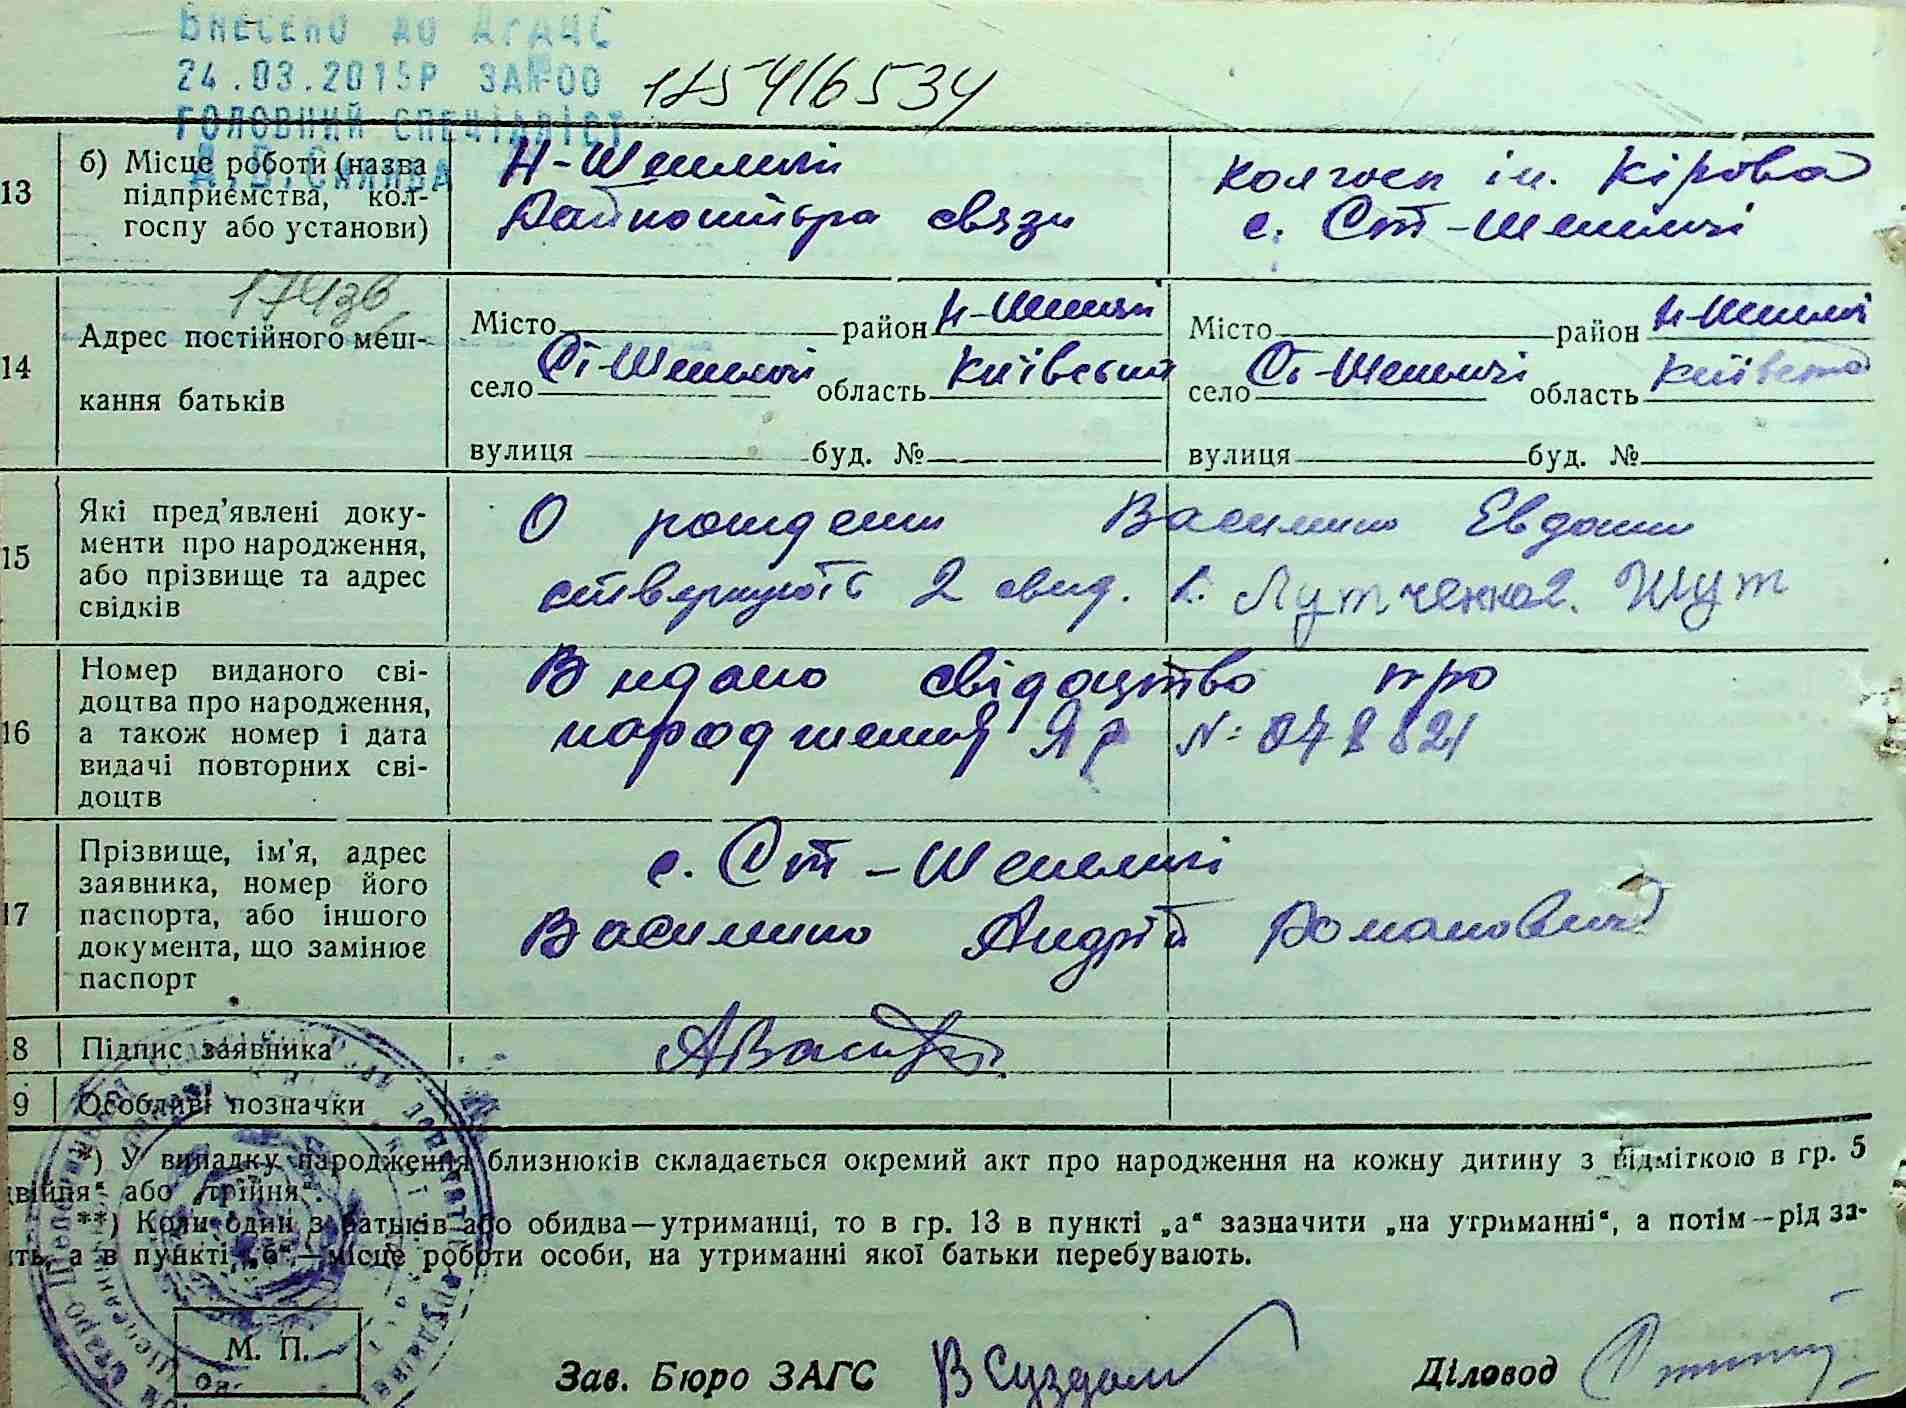 ВНЕСЕНО ДО ДРАЦС
24.03.2015Р ЗА№00 1254116534
ГОЛОВНИЙ СПЕЦІАЛІСТ
13 б) Місце роботи (назва підприємства, кол-
госпу або установи)
Н-Шепеличі
Райконтора связи
Колгосп ім. Кірова
с. Ст-Шепеличі
14 Адрес постійного меш-
кання батьків
Місто район Н-Шепеличі
село Ст-Шепеличі область Київський
вулиця буд. №
Місто район Н-Шепеличі
село Ст-Шепеличі область Київська
вулиця буд. №
15 Які пред'явлені доку-
менти про народження,
або прізвище та адрес
свідків
О рождении Василишо Евдокии
ствержують 2 свид.
16 Номер виданого сві-
доцтва про народження,
а також номер і дата
видачі повторних сві-
доцтв
Видано свідоцтво про
народження
17 Прізвище, ім'я, адрес
заявника, номер його
паспорта, або іншого
документа, що замінює
паспорт
с. Ст-Шепеличі
Андрій Романович
8 Підпис заявника
9 Особливі позначки
*) У випадку народження близнюків складається окремий акт про народження на кожну дитину з відміткою в гр. 5
двійня" або „трійня".
**) Коли один з батьків або обидва—утриманці, то в гр. 13 в пункті „а" зазначити „на утриманні", а потім—рід за-
ть, а в пункті „б"—місце роботи особи, на утриманні якої батьки перебувають.
М. П.
Зав. Бюро ЗАГС
Діловод